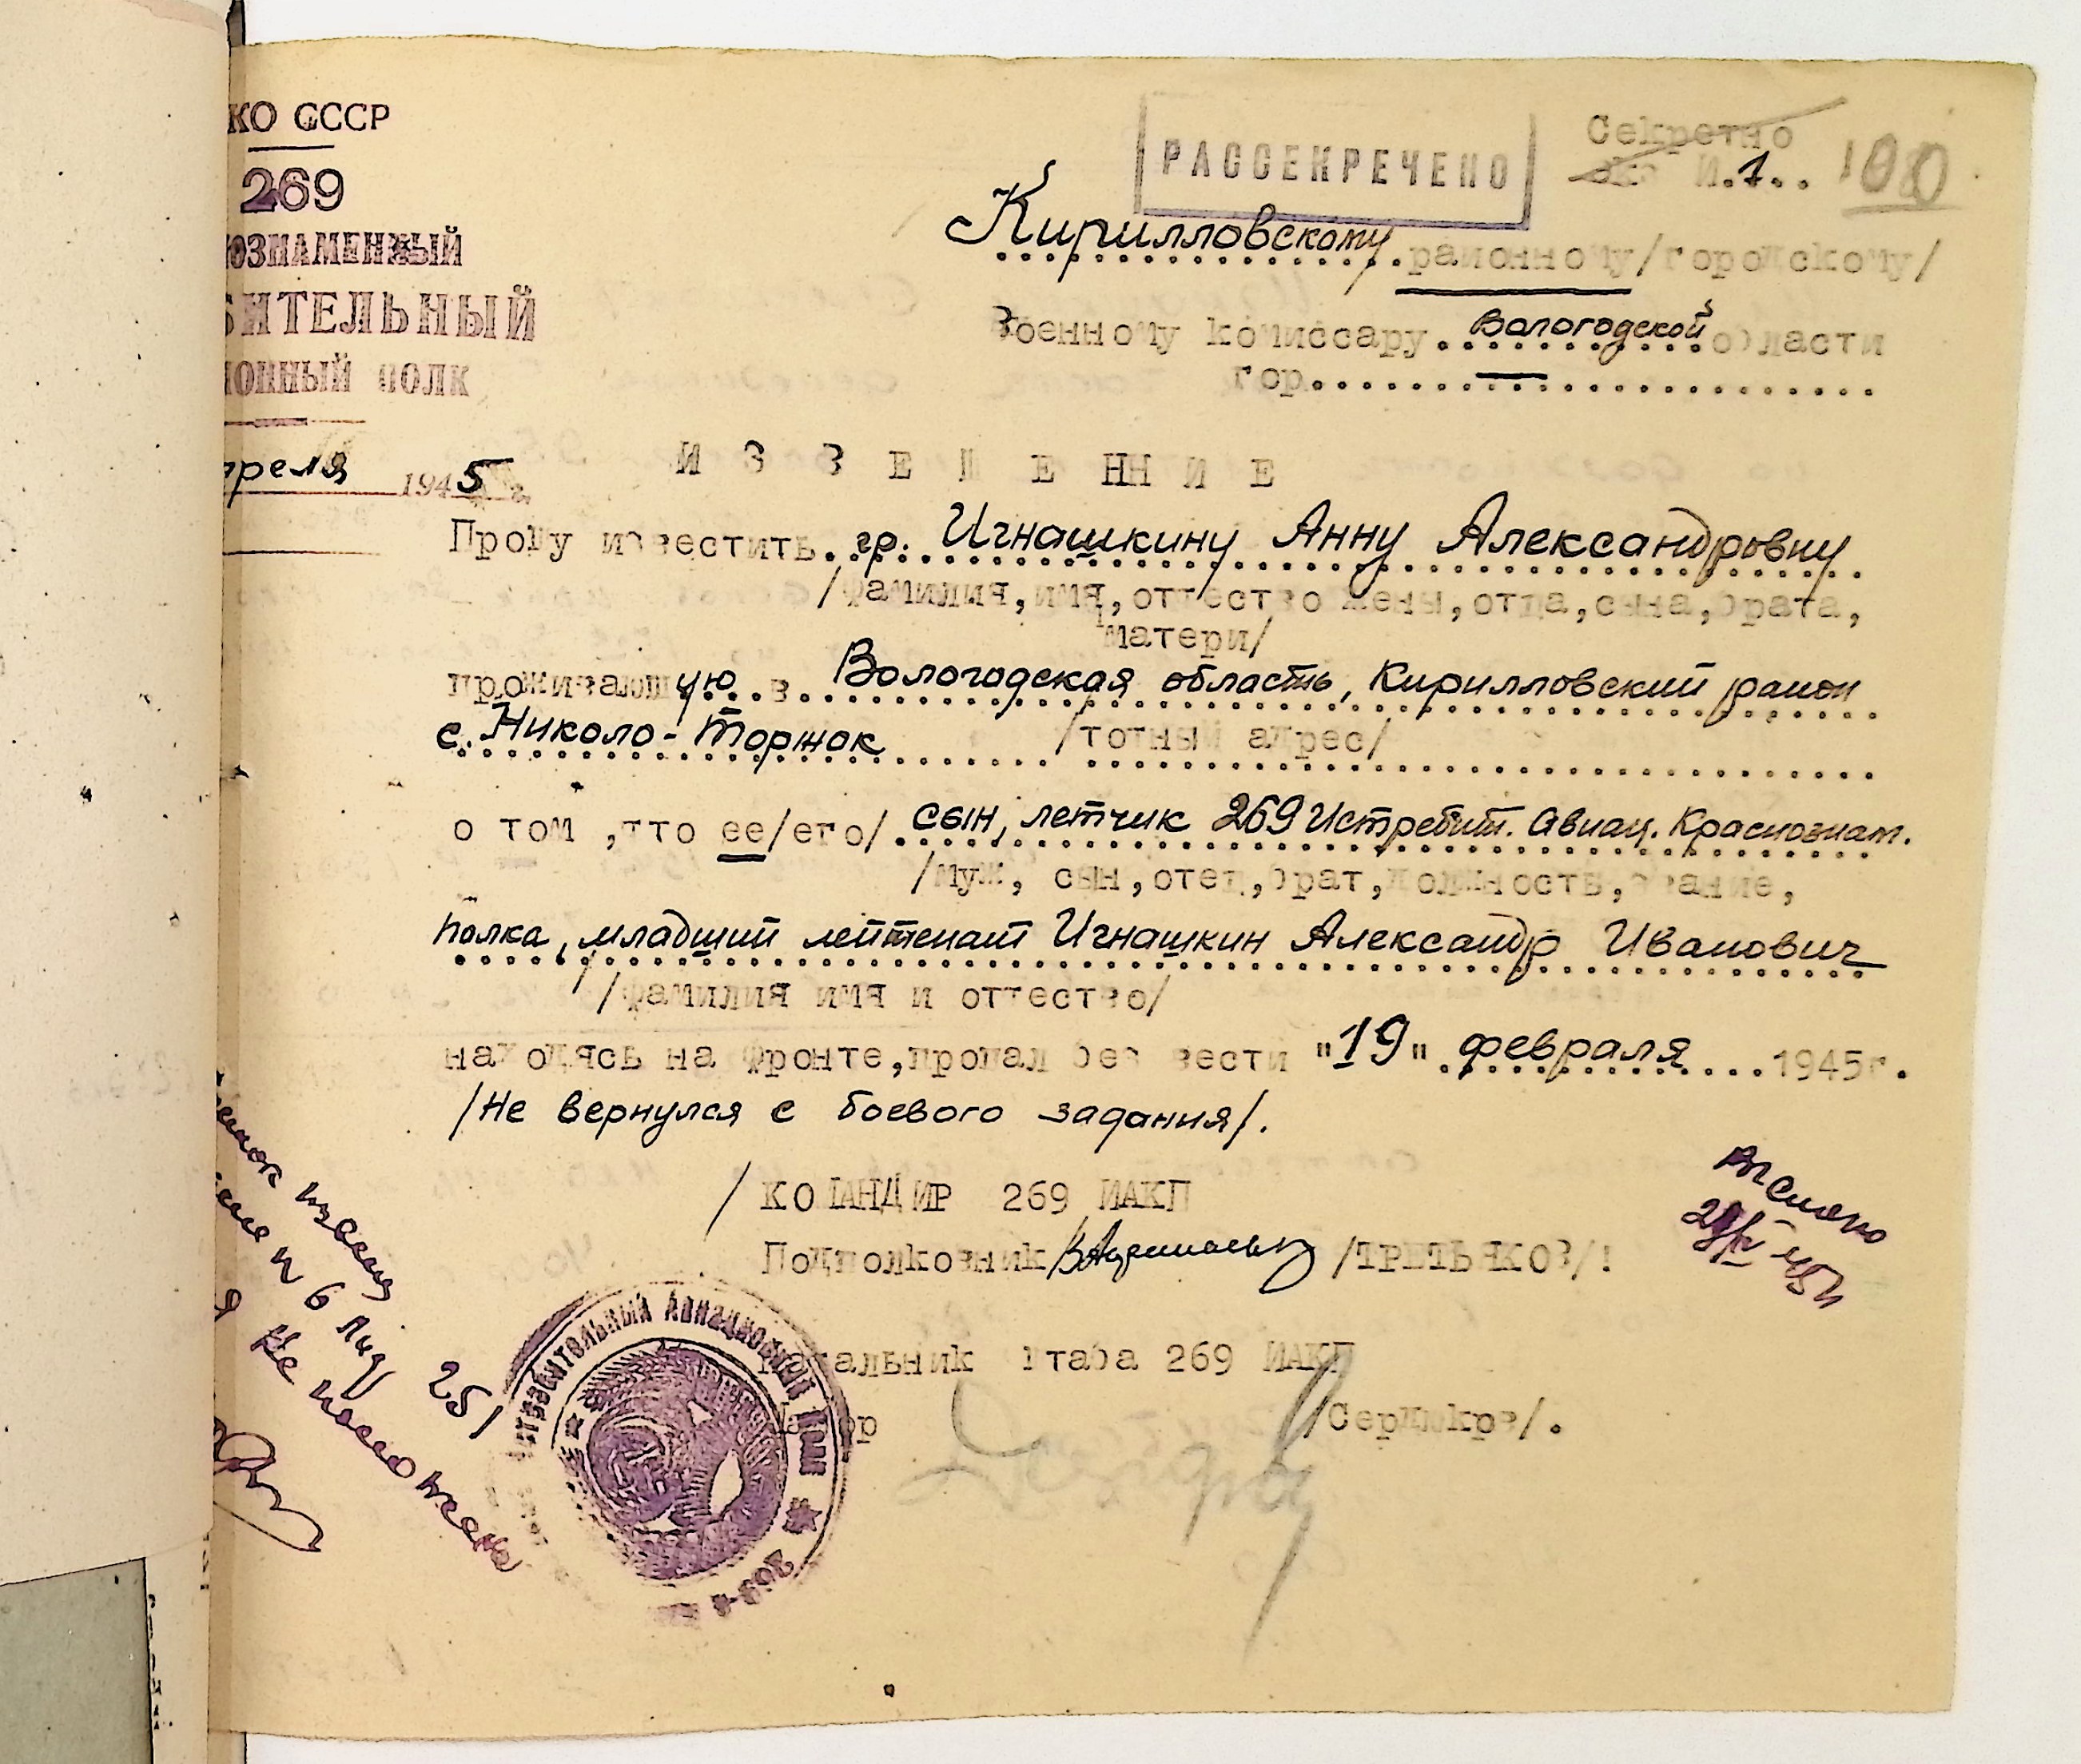 КО СССР
269
ОЗНАМЕННЫЙ
БИТЕЛЬНЫЙ
ИОННЫЙ ПОЛК
преля 1945 г.
РАССЕКРЕЧЕНО
Секретно
Экз N.1..
100
Кирилловскому районному/городскому/
Военному комиссару Вологодской области
гор.
ИЗВЕЩЕНИЕ
Прошу известить гр. Игнашкину Анну Александровну
/фамилия,имя,оттчество жены,отца,сына,брата,
матери/
проживающую в Вологодская область, Кирилловский район
с. Николо-Торжок /тотный адрес/
о том ,тто ее/его/ сын, летчик 269 Истребит. Авиац. Краснознам.
/муж, сын,отец,брат,должность,звание,
полка, младший лейтенант Игнашкин Александр Иванович
/фамилия имя и оттество/
находясь на фронте,пропал без вести "19" февраля 1945г.
/Не вернулся с боевого задания/.
/КОМАНДИР 269 ИАКП
Подполковник /ТРЕТЬЯКОВ/!
Начальник штаба 269 ИАКП
Майор /Сердюков/.
ИСТРЕБИТЕЛЬНЫЙ АВИАЦИОННЫЙ ПОЛК ★ 269-й
извещ
N 6 лиц
251
не положена